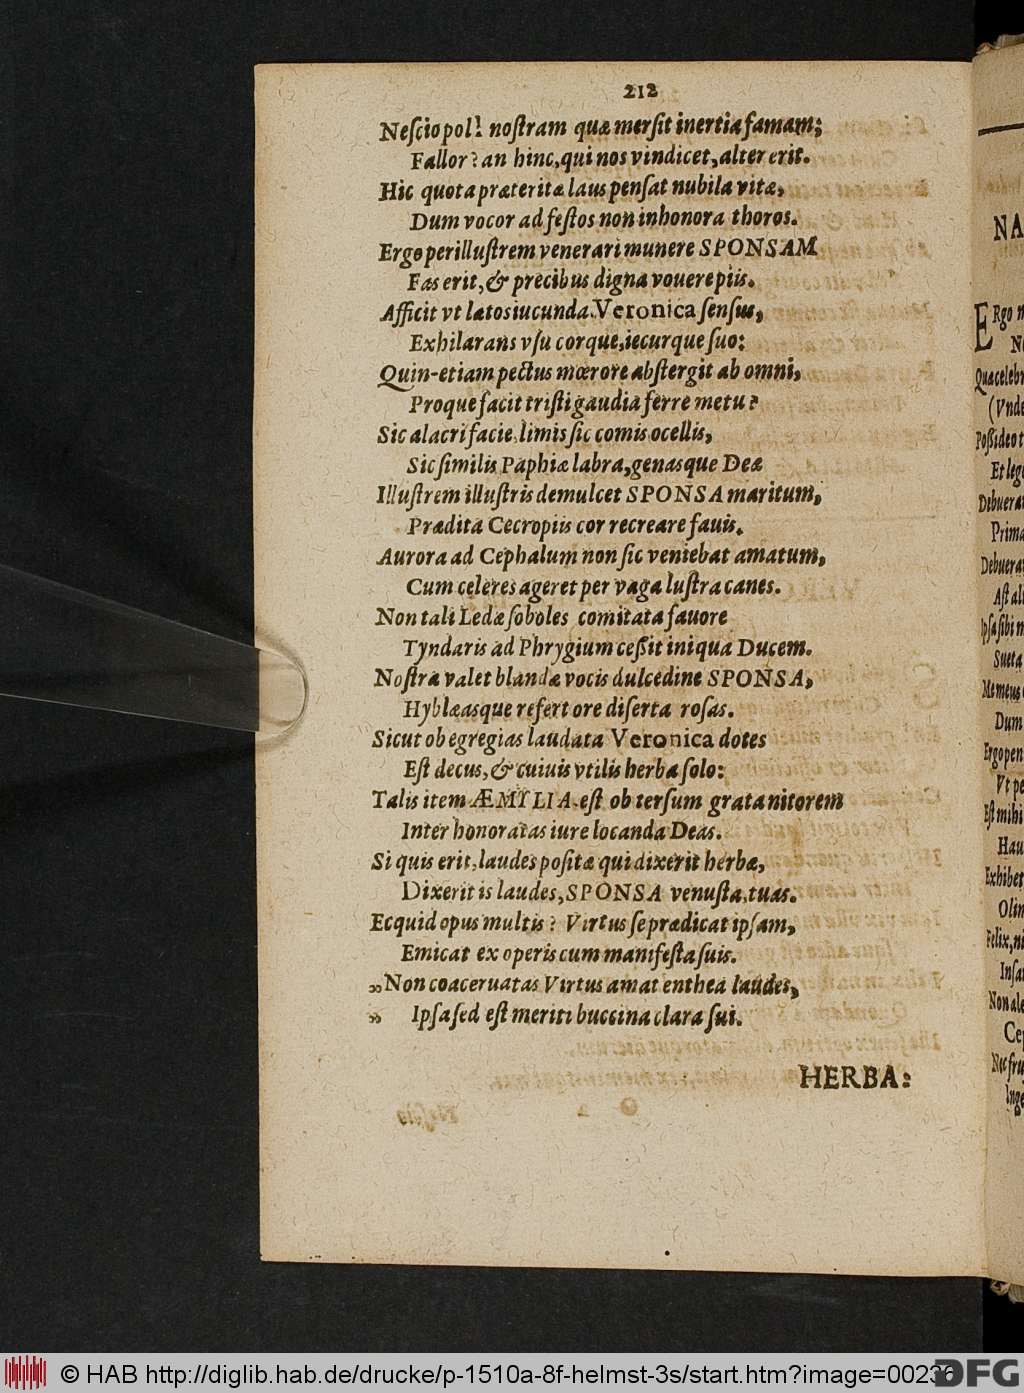 212
Neſcio pol! noſtram quæ merſit inertia famam;
Fallor? an hinc, qui nos vindicet, alter erit.
Hic quota præteritæ laus penſat nubila vitæ,
Dum vocor ad feſtos non inhonora thoros.
Ergo perilluſtrem venerari munere SPONSAM
Fas erit, & precibus digna vouere piis.
Afficit vt lætos iucunda Veronica ſenſus,
Exhilarans vſu corque, iecurque ſuo:
Quin-etiam pectus mœrore abſtergit ab omni,
Proque facit triſti gaudia ferre metu?
Sic alacri facie, limis ſic comis ocellis,
Sic ſimilis Paphiæ labra, genasque Deæ
Illuſtrem illuſtris demulcet SPONSA maritum,
Prædita Cecropiis cor recreare fauis.
Aurora ad Cephalum non ſic veniebat amatum,
Cum celeres ageret per vaga luſtra canes.
Non tali Ledæ ſoboles comitata fauore
Tyndaris ad Phrygium ceſſit iniqua Ducem.
Noſtra valet blandæ vocis dulcedine SPONSA,
Hyblæasque refert ore diſerta roſas.
Sicut ob egregias laudata Veronica dotes
Eſt decus, & cuiuis vtilis herba ſolo:
Talis item ÆMYLIA eſt ob terſum grata nitorem
Inter honoratas iure locanda Deas.
Si quis erit, laudes poſitæ qui dixerit herbæ,
Dixerit is laudes, SPONSA venuſta, tuas.
Ecquid opus multis? Virtus ſe prædicat ipſam,
Emicat ex operis cum manifeſta ſuis.
„Non coaceruatas Virtus amat enthea laudes,
„ Ipſa ſed eſt meriti buccina clara ſui.
HERBA:
NA
ERgo
Quæ celebr
(Vnde
Poſſideo
Et leg
Debuera
Prima
Debuera
Aſt al
Ipſa ſibi
Sueta
Me meus
Dum
Ergo pen
Vt pe
Eſt mihi
Hau
Exhibet
Olim
Felix, ni
Inſa
Non ale
Cep
Nec fru
Inge
© HAB http://diglib.hab.de/drucke/p-1510a-8f-helmst-3s/start.htm?image=00236
DFG